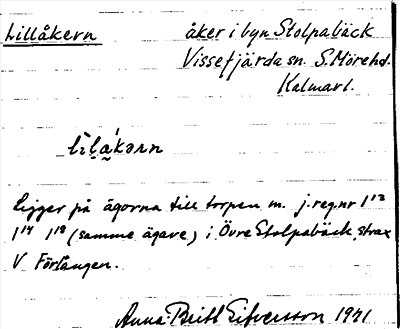 Lillåkern åker i byn Stolpabäck
Vissefjärda sn. S. Möre hd.
Kalmar l.
ligger på ägorna till torpen m. j.reg.nr 1¹³
1¹⁴ 1¹⁸ (samme ägare) i Övre Stolpabäck, strax
V Förlången.
Anna-Britt Sifversson 1941